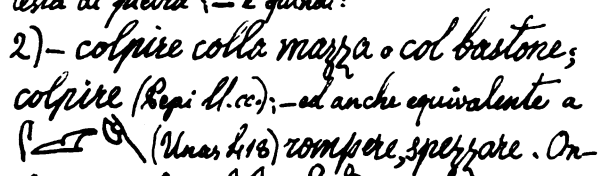 testa di pietra; — e quindi:
2) — colpire colla mazza o col bastone;
colpire (Pepi ll.cc.); — ed anche equivalente a
(Unas 418) rompere, spezzare. On-